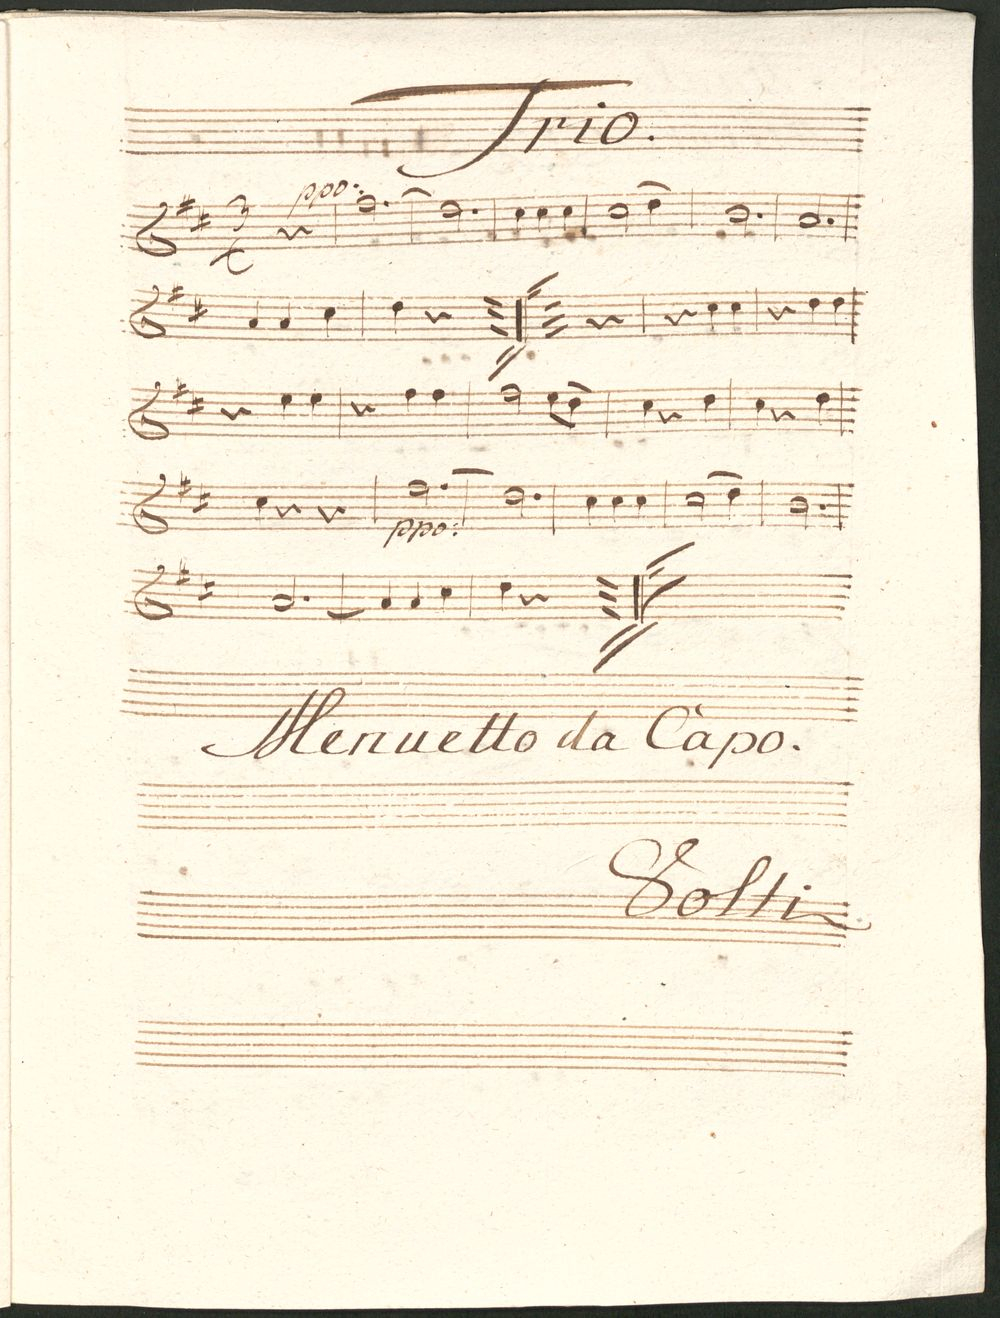 Trio.
ppo:
3
C
ppo:
Menuetto da Capo.
Volti